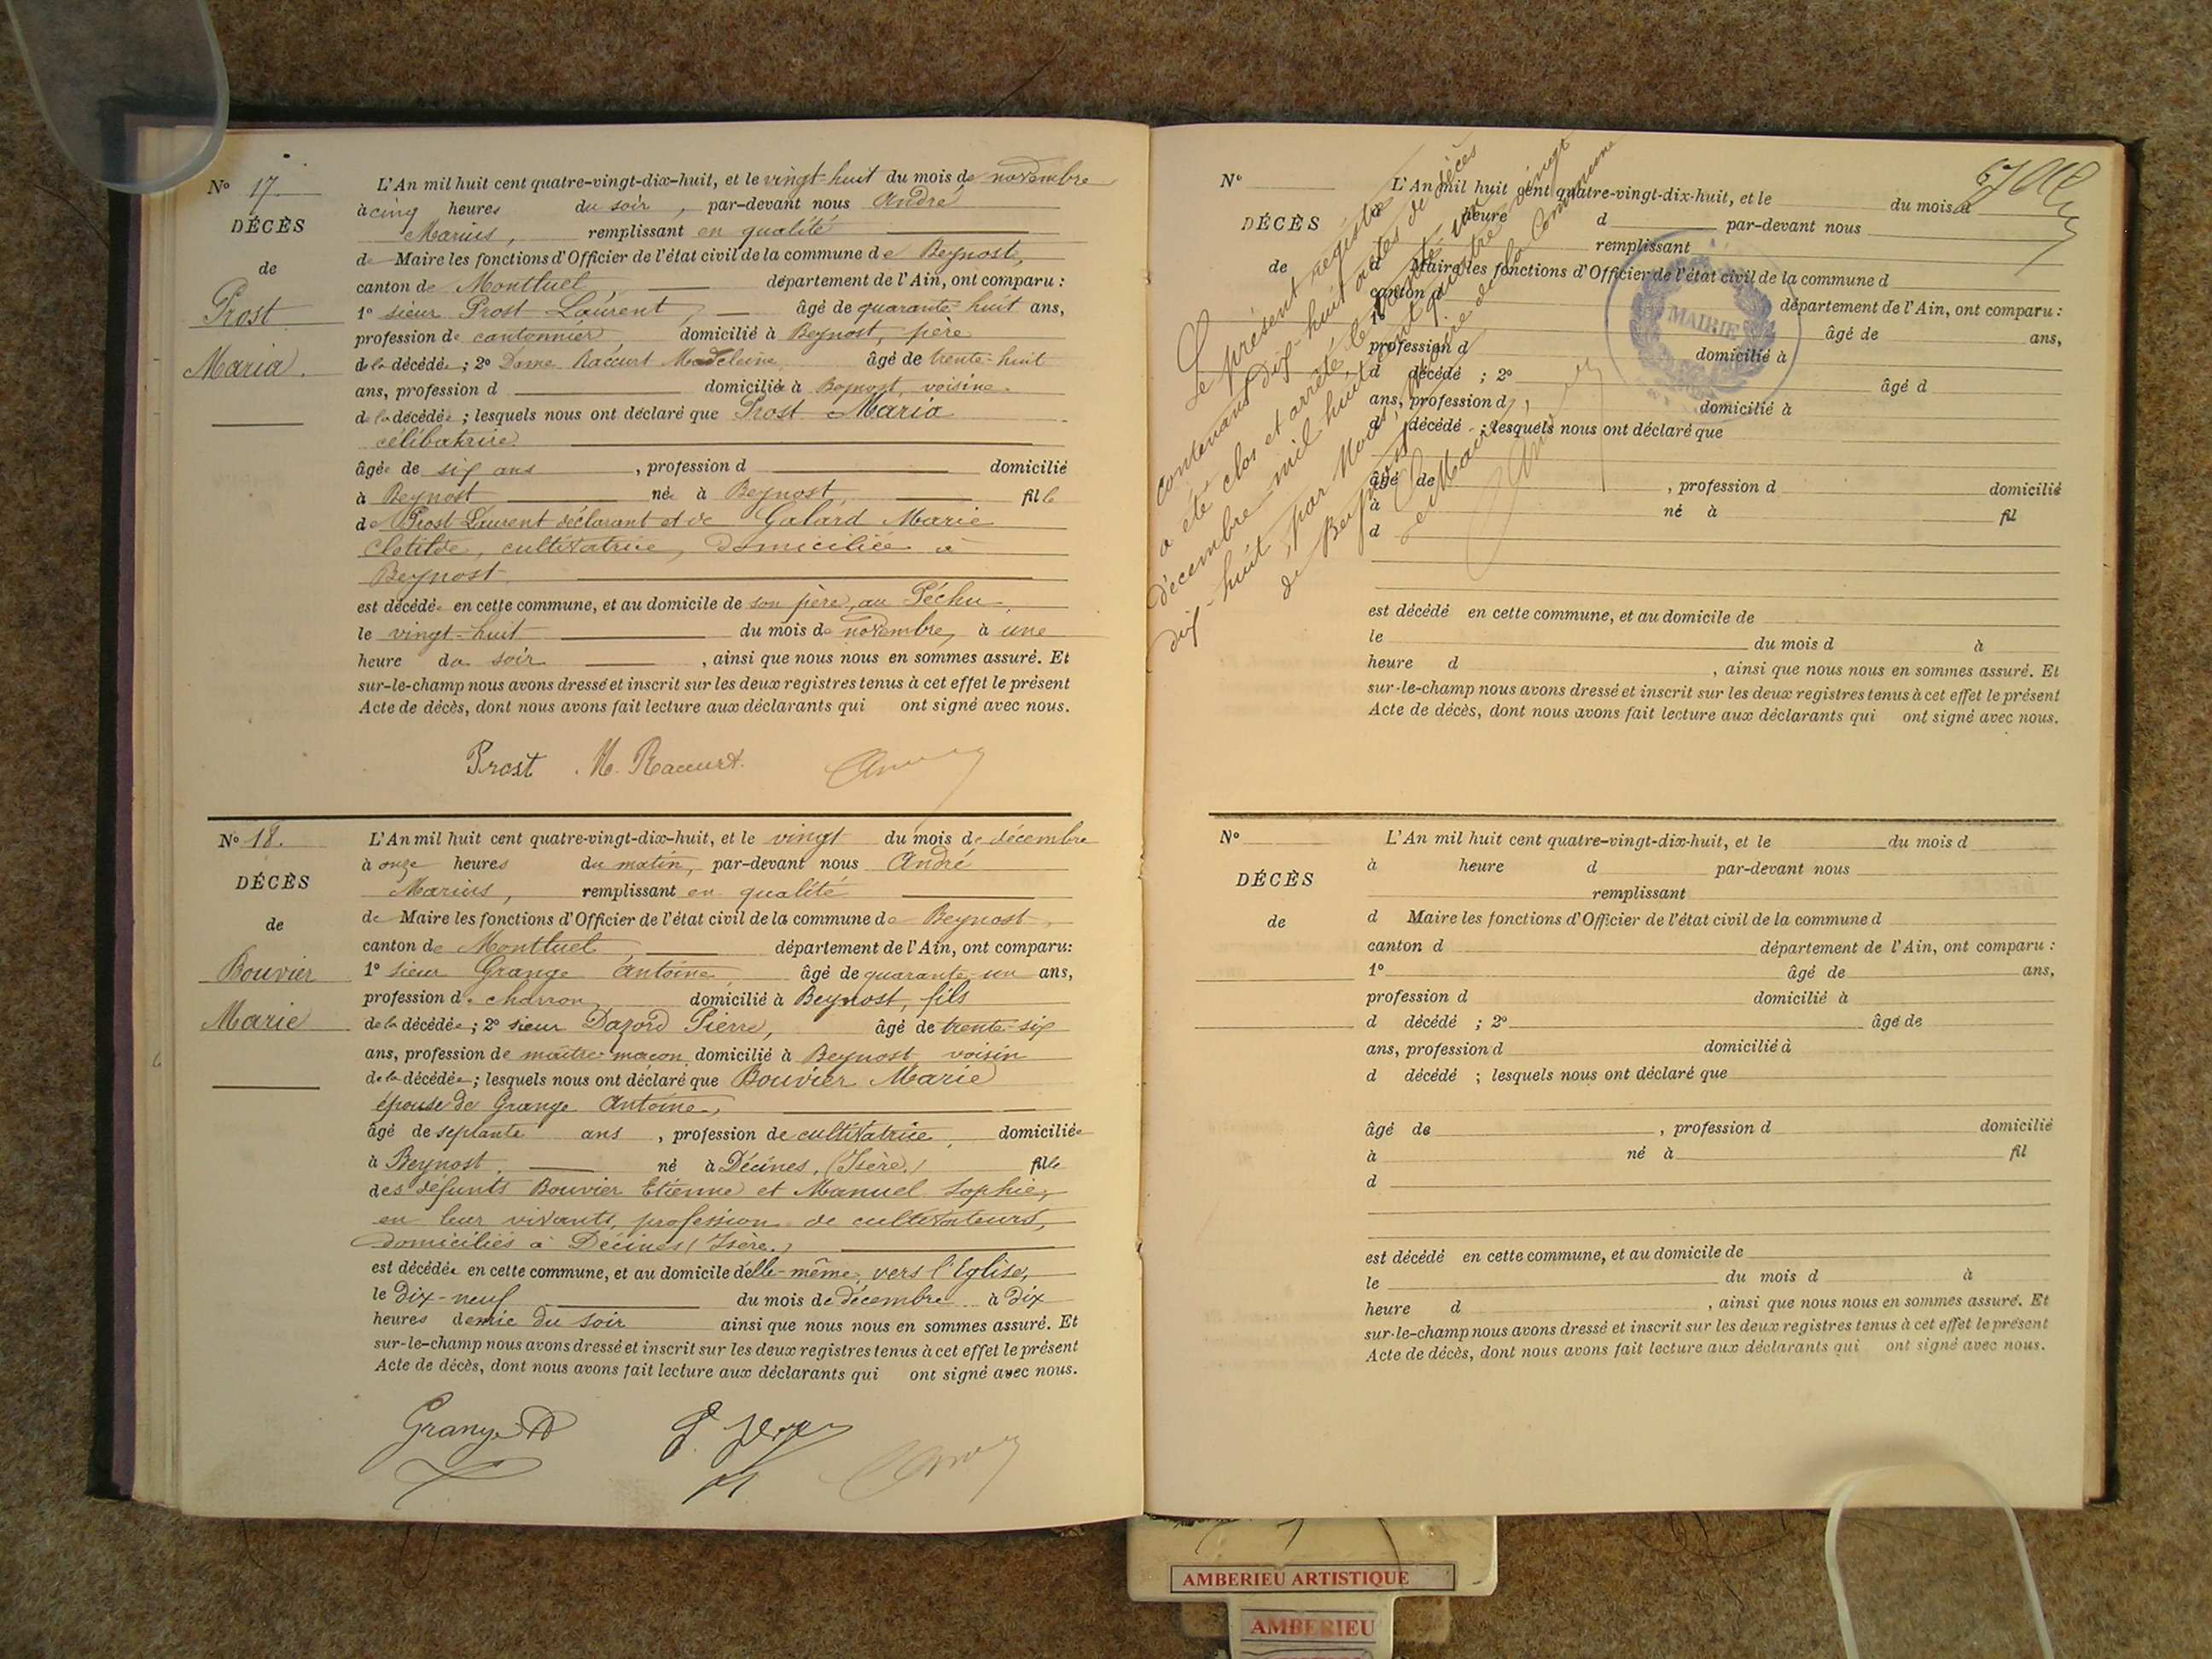 N° 17.
DÉCÈS
de
Prost
Maria.
L'An mil huit cent quatre-vingt-dix-huit, et le vingt-huit du mois de novembre
à cinq heures du soir, par-devant nous André
Marius, remplissant en qualité
de Maire les fonctions d'Officier de l'état civil de la commune de Beynost,
canton de Montluel, département de l'Ain, ont comparu :
1° sieur Prost Laurent, âgé de quarante-huit ans,
profession de cantonnier, domicilié à Beynost, père
de la décédée ; 2° Dame Raccurt Madeleine âgé de trente-huit
ans, profession d domiciliée à Beynost, voisine
de la décédée ; lesquels nous ont déclaré que Prost Maria
célibataire
âgée de six ans, profession d domicilié
à Beynost née à Beynost, fille
de Prost Laurent déclarant et de Galard Marie
Clotilde, cultivatrice, domiciliée à
Beynost.
est décédée en cette commune, et au domicile de son père, au Péchu,
le vingt-huit du mois de novembre, à une
heure du soir, ainsi que nous nous en sommes assuré. Et
sur-le-champ nous avons dressé et inscrit sur les deux registres tenus à cet effet le présent
Acte de décès, dont nous avons fait lecture aux déclarants qui ont signé avec nous.
Prost M. Raccurt
N° 18.
DÉCÈS
de
Bouvier
Marie
L'An mil huit cent quatre-vingt-dix-huit, et le vingt du mois de décembre
à onze heures du matin, par-devant nous André
Marius, remplissant en qualité
de Maire les fonctions d'Officier de l'état civil de la commune de Beynost,
canton de Montluel, département de l'Ain, ont comparu :
1° sieur Grange Antoine, âgé de quarante-un ans,
profession de charron, domicilié à Beynost, fils
de la décédée ; 2° sieur Dazord Pierre, âgé de trente-six
ans, profession de maître-maçon domicilié à Beynost, voisin
de la décédée ; lesquels nous ont déclaré que Bouvier Marie
épouse de Grange Antoine,
âgé de septante ans, profession de cultivatrice, domiciliée
à Beynost, né à Décines, (Isère.) fille
des défunts Bouvier Etienne et Manuel Sophie,
en leur vivants, profession de cultivateurs,
domiciliés à Décines (Isère.)
est décédée en cette commune, et au domicile d'elle-même, vers l'Eglise,
le dix-neuf du mois de décembre à dix
heures demie du soir ainsi que nous nous en sommes assuré. Et
sur-le-champ nous avons dressé et inscrit sur les deux registres tenus à cet effet le présent
Acte de décès, dont nous avons fait lecture aux déclarants qui ont signé avec nous.
Grange A
N°
DÉCÈS
de
L'An mil huit cent quatre-vingt-dix-huit, et le du mois d
à heure d par-devant nous
remplissant
d Maire les fonctions d'Officier de l'état civil de la commune d
canton d département de l'Ain, ont comparu :
1° âgé de ans,
profession d domicilié à
d décédé ; 2° âgé d
ans, profession d domicilié à
d décédé ; lesquels nous ont déclaré que
âgé de , profession d domicilié
à né à fil
d
est décédé en cette commune, et au domicile de
le du mois d à
heure d , ainsi que nous nous en sommes assuré. Et
sur-le-champ nous avons dressé et inscrit sur les deux registres tenus à cet effet le présent
Acte de décès, dont nous avons fait lecture aux déclarants qui ont signé avec nous.
Le présent registre
contenant dix-huit actes de décès
a été clos et arrêté, le trente-un
décembre mil huit cent quatre-vingt
dix-huit, par Nous, Maire de la Commune
de Beynost,
Le Maire,
MAIRIE
N°
DÉCÈS
de
L'An mil huit cent quatre-vingt-dix-huit, et le du mois d
à heure d par-devant nous
remplissant
d Maire les fonctions d'Officier de l'état civil de la commune d
canton d département de l'Ain, ont comparu :
1° âgé de ans,
profession d domicilié à
d décédé ; 2° âgé de
ans, profession d domicilié à
d décédé ; lesquels nous ont déclaré que
âgé de , profession d domicilié
à né à fil
d
est décédé en cette commune, et au domicile de
le du mois d à
heure d , ainsi que nous nous en sommes assuré. Et
sur-le-champ nous avons dressé et inscrit sur les deux registres tenus à cet effet le présent
Acte de décès, dont nous avons fait lecture aux déclarants qui ont signé avec nous.
AMBERIEU ARTISTIQUE
AMBERIEU